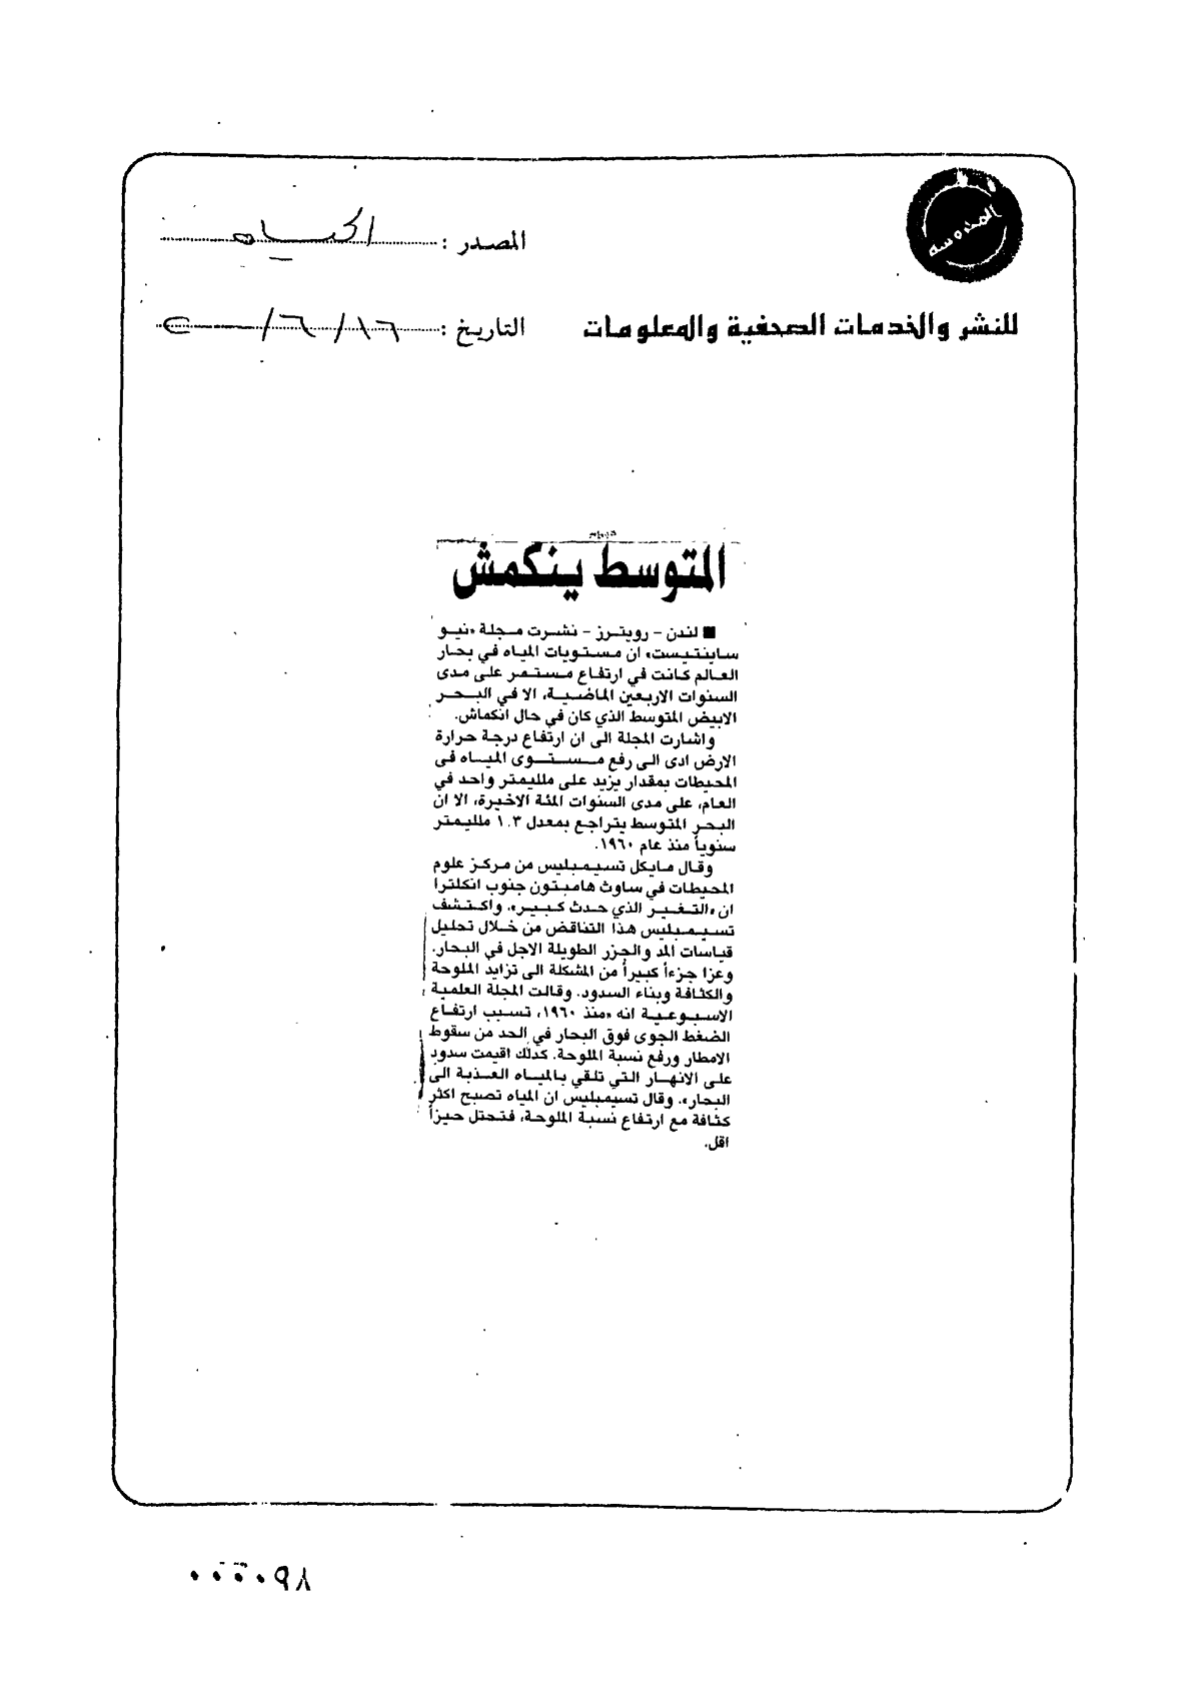 المصدر : الحياه
للنشر والخدمات الصحفية والمعلومات
التاريخ : ١٦/٦/
المتوسط ينكمش
■ لندن - رويترز - نشرت مجلة «نيو
ساينتيست» ان مستويات المياه في بحار
العالم كانت في ارتفاع مستمر على مدى
السنوات الاربعين الماضية، الا في البحر
الابيض المتوسط الذي كان في حال انكماش.
واشارت المجلة الى ان ارتفاع درجة حرارة
الارض ادى الى رفع مستوى المياه في
المحيطات بمقدار يزيد على ملليمتر واحد في
العام، على مدى السنوات المئة الاخيرة، الا ان
البحر المتوسط يتراجع بمعدل ١.٣ ملليمتر
سنوياً منذ عام ١٩٦٠.
وقال مايكل تسيمبليس من مركز علوم
المحيطات في ساوث هامبتون جنوب انكلترا
ان «التغير الذي حدث كبير». واكتشف
تسيمبليس هذا التناقض من خلال تحليل
قياسات المد والجزر الطويلة الاجل في البحار.
وعزا جزءاً كبيراً من المشكلة الى تزايد الملوحة
والكثافة وبناء السدود. وقالت المجلة العلمية
الاسبوعية انه «منذ ١٩٦٠، تسبب ارتفاع
الضغط الجوي فوق البحار في الحد من سقوط
الامطار ورفع نسبة الملوحة. كذلك اقيمت سدود
على الانهار التي تلقي بالمياه العذبة الى
البحار». وقال تسيمبليس ان المياه تصبح اكثر
كثافة مع ارتفاع نسبة الملوحة، فتحتل حيزاً
اقل.